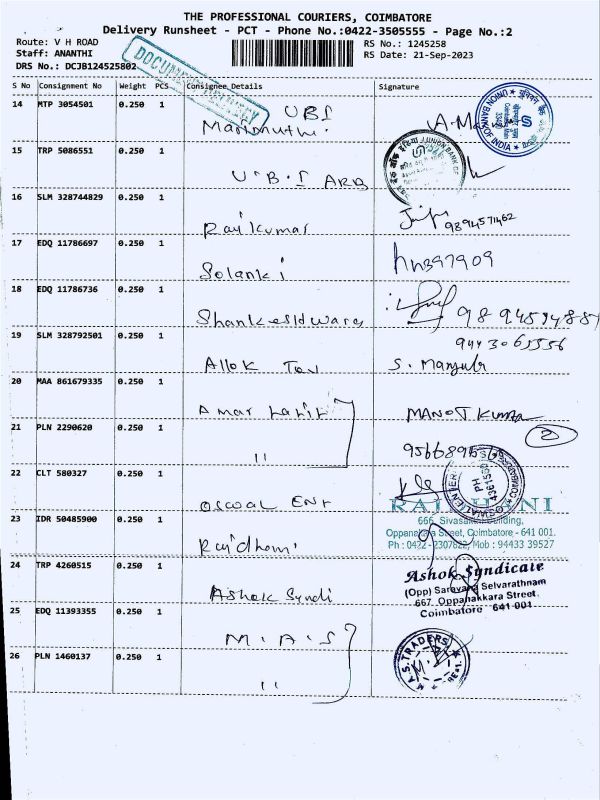 THE PROFESSIONAL COURIERS, COIMBATORE
Delivery Runsheet - PCT - Phone No.:0422-3505555 - Page No.:2
Route: V H ROAD
RS No.: 1245258
Staff: ANANTHI
RS Date: 21-Sep-2023
DRS No.: DCJB124525802
DOCUMENT DELIVERY
S No Consignment No Weight PCS Consignee Details Signature
14 MTP 3054501 0.250 1 UBI
Marimuthu.
UNION BANK OF INDIA
15 TRP 5086551 0.250 1
U.B.I ARB
16 SLM 328744829 0.250 1
Rajkumar 9894571462
17 EDQ 11786697 0.250 1
Solanki
18 EDQ 11786736 0.250 1
19 SLM 328792501 0.250 1 9443065556
S. Manjula
20 MAA 861679335 0.250 1
MANOJ Kumar
21 PLN 2290620 0.250 1 2
"
22 CLT 580327 0.250 1
OSWAL ENT
23 IDR 50485900 0.250 1 666, Sivasakthi Building,
Oppanakara Street, Coimbatore - 641 001.
Ph : 0422 - 2307822, Mob : 94433 39527
Rajdhani
24 TRP 4260515 0.250 1 Ashok Syndicate
(Opp) Saravana Selvarathnam
Ashok Syndi 667, Oppanakkara Street
Coimbatore 641 001
25 EDQ 11393355 0.250 1
M.A.S
26 PLN 1460137 0.250 1 M.A.S. TRADERS
"